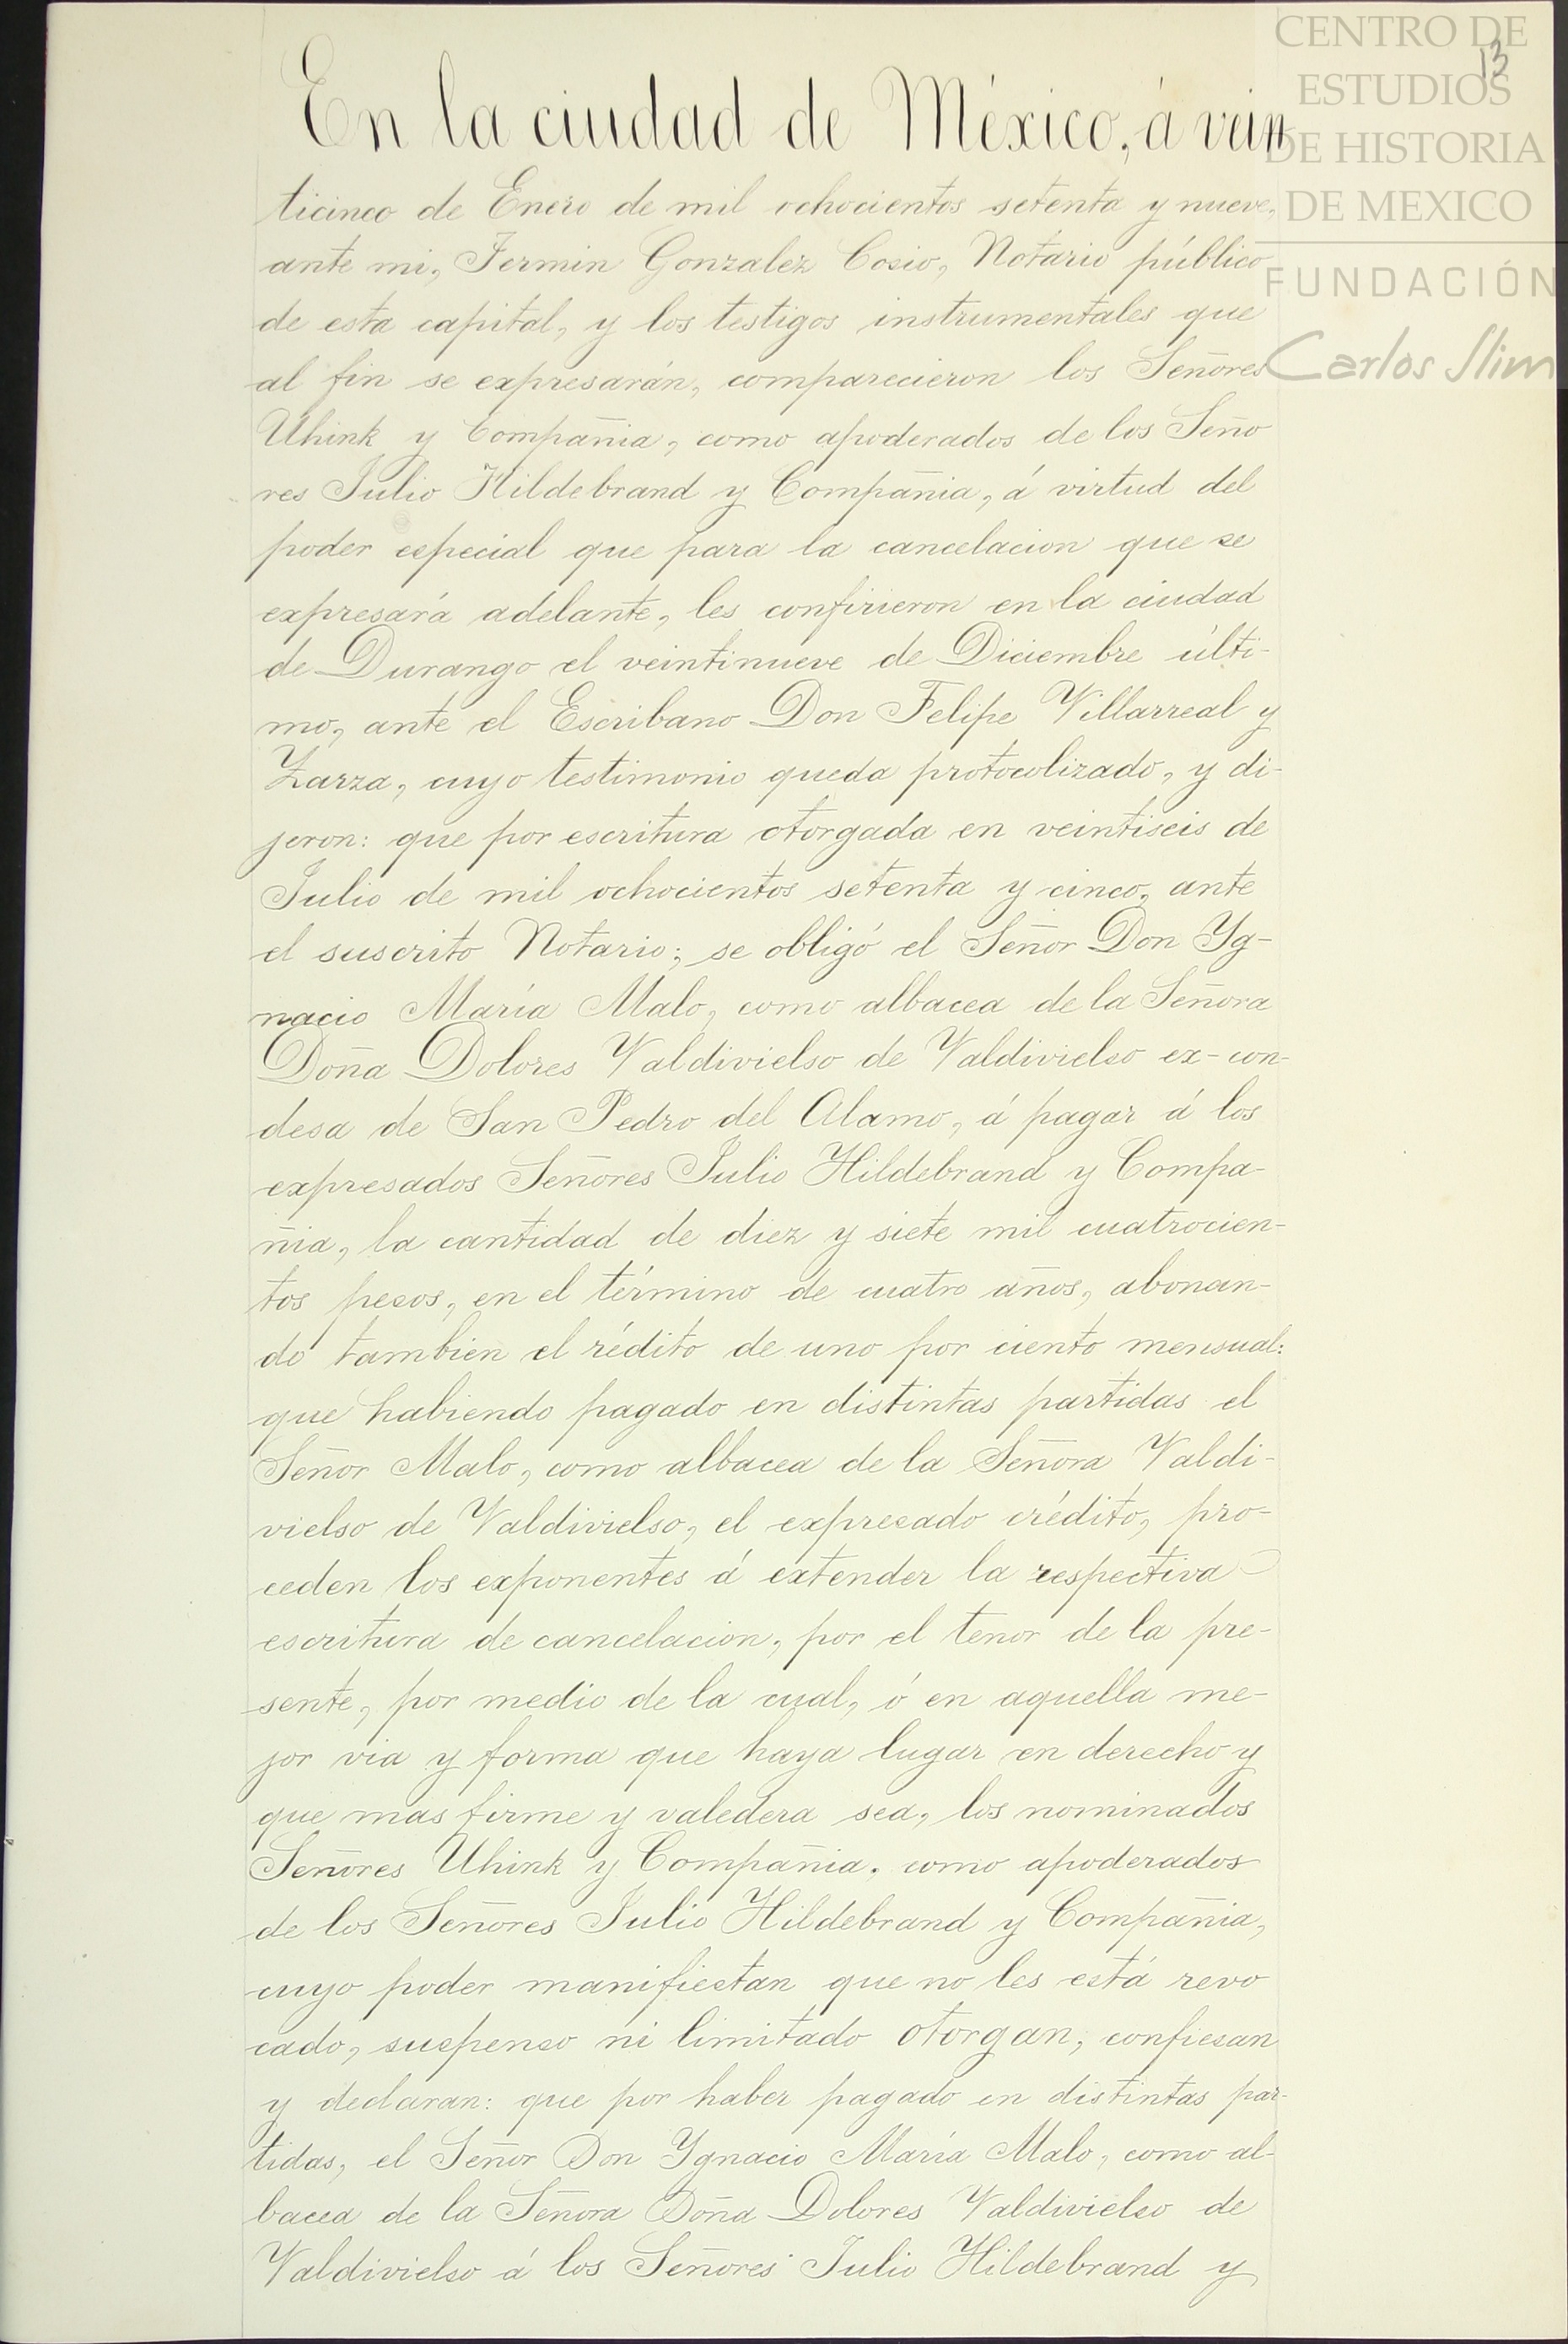 CENTRO DE
ESTUDIOS
DE HISTORIA
DE MEXICO
FUNDACIÓN
Carlos Slim
13
En la ciudad de México, á vein
ticinco de Enero de mil ochocientos setenta y nueve,
ante mi, Fermin Gonzalez Cosio, Notario público
de esta capital, y los testigos instrumentales que
al fin se expresarán, comparecieron los Señores
Uhink y Compañia, como apoderados de los Seño
res Julio Hildebrand y Compañia, á virtud del
poder especial que para la cancelacion que se
expresará adelante, les confirieron en la ciudad
de Durango el veintinueve de Diciembre últi-
mo, ante el Escribano Don Felipe Villarreal y
Zarza, cuyo testimonio queda protocolizado, y di-
jeron: que por escritura otorgada en veintiseis de
Julio de mil ochocientos setenta y cinco, ante
el suscrito Notario; se obligó el Señor Don Yg-
nacio María Malo, como albacea de la Señora
Doña Dolores Valdivielso de Valdivielso ex-con-
desa de San Pedro del Alamo, á pagar á los
expresados Señores Julio Hildebrand y Compa-
ñia, la cantidad de diez y siete mil cuatrocien-
tos pesos, en el término de cuatro años, abonan-
do tambien el rédito de uno por ciento mensual:
que habiendo pagado en distintas partidas el
Señor Malo, como albacea de la Señora Valdi-
vielso de Valdivielso, el expresado crédito, pro-
ceden los exponentes á extender la respectiva
escritura de cancelacion, por el tenor de la pre-
sente, por medio de la cual, ó en aquella me-
jor via y forma que haya lugar en derecho y
que mas firme y valedera sea, los nominados
Señores Uhink y Compañia, como apoderados
de los Señores Julio Hildebrand y Compañia,
cuyo poder manifiestan que no les está revo
cado, suspenso ni limitado otorgan, confiesan
y declaran: que por haber pagado en distintas par-
tidas, el Señor Don Ygnacio María Malo, como al-
bacea de la Señora Doña Dolores Valdivielso de
Valdivielso á los Señores Julio Hildebrand y